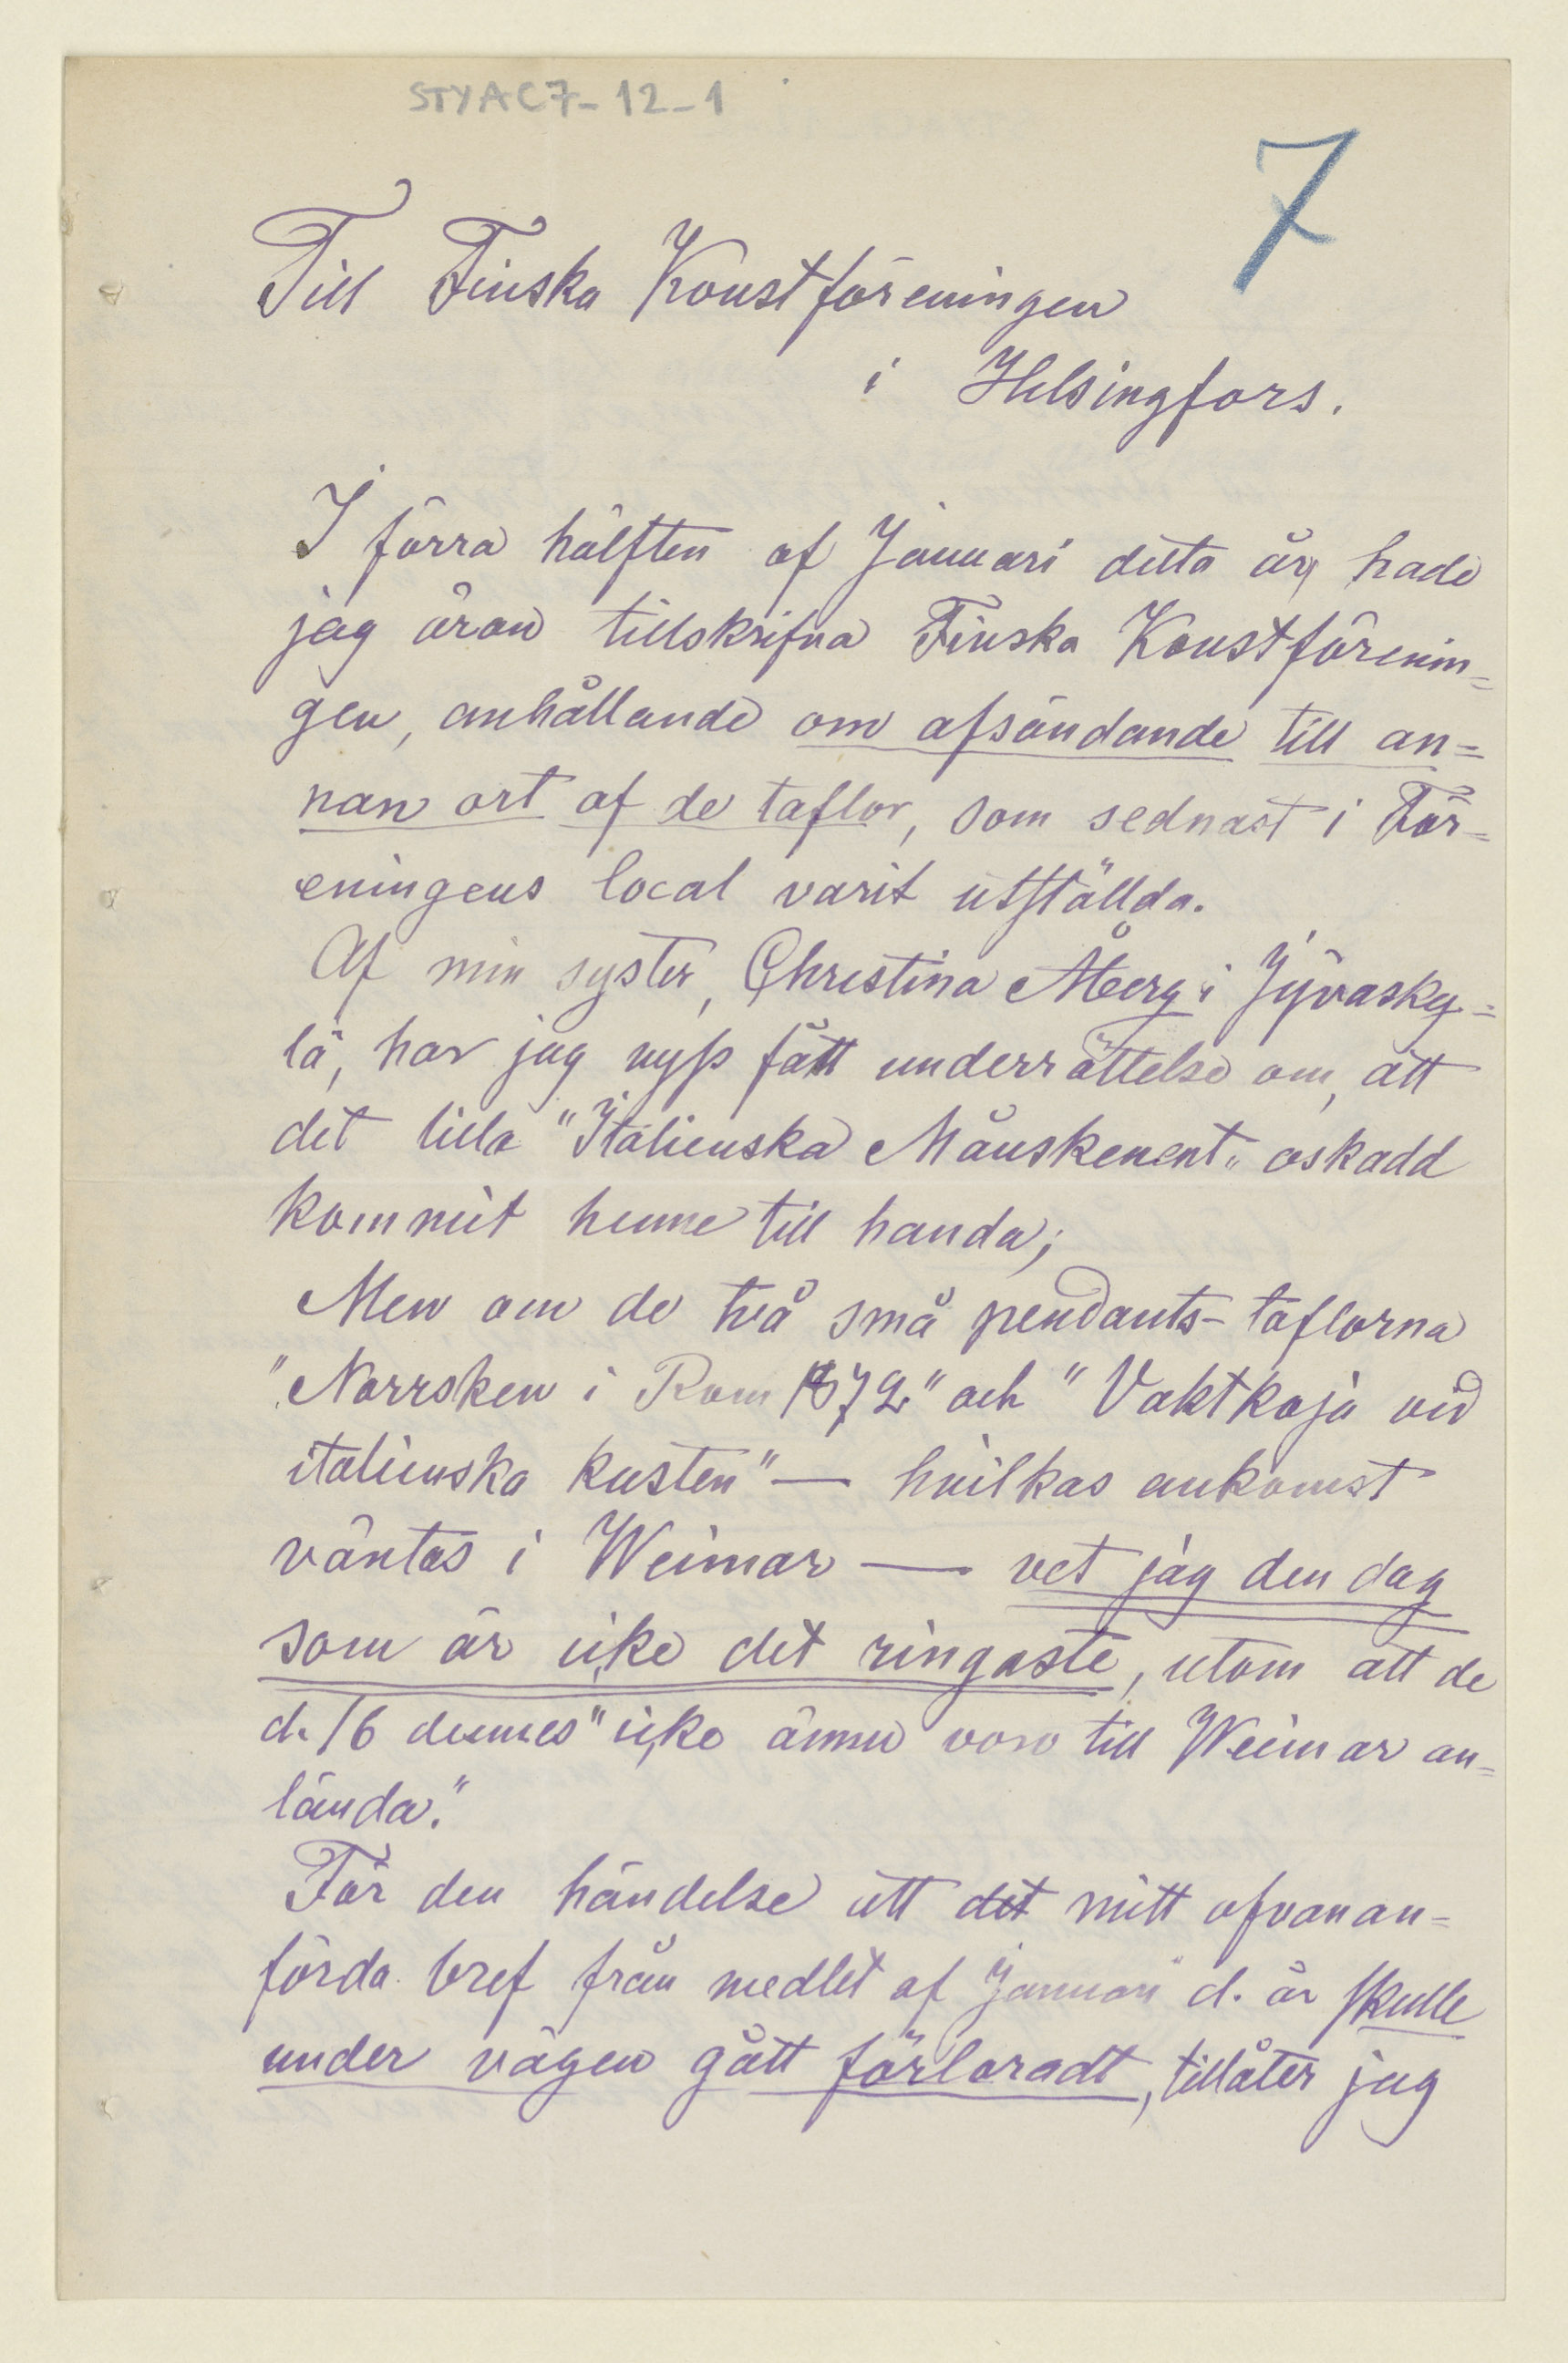 STYAC7-12-1
7
Till Finska Konstföreningen
i Helsingfors.
I förra hälften af Januari detta år, hade
jag äran tillskrifva Finska Konstförenin=
gen, anhållande om afsändande till an=
nan ort af de taflor, som sednast i För=
eningens local varit utställda.
Af min syster, Christina Åberg i Jyväsky=
lä, har jag nyss fått underrättelse om, att
det lilla "Italienska Månskenent" oskadd
kommit henne till handa;
Men om de två små pendants-taflorna
"Norrsken i Rom 1872" och "Vaktkoja vid
italienska kusten" — hvilkas ankomst
väntas i Weimar — vet jag den dag
som är icke det ringaste, utom att de
d. 16 dennes "icke ännu voro till Weimar an=
lända."
För den händelse att det mitt ofvanan=
förda bref från medlet af Januari d. år skulle
under vägen gått förloradt, tillåter jag